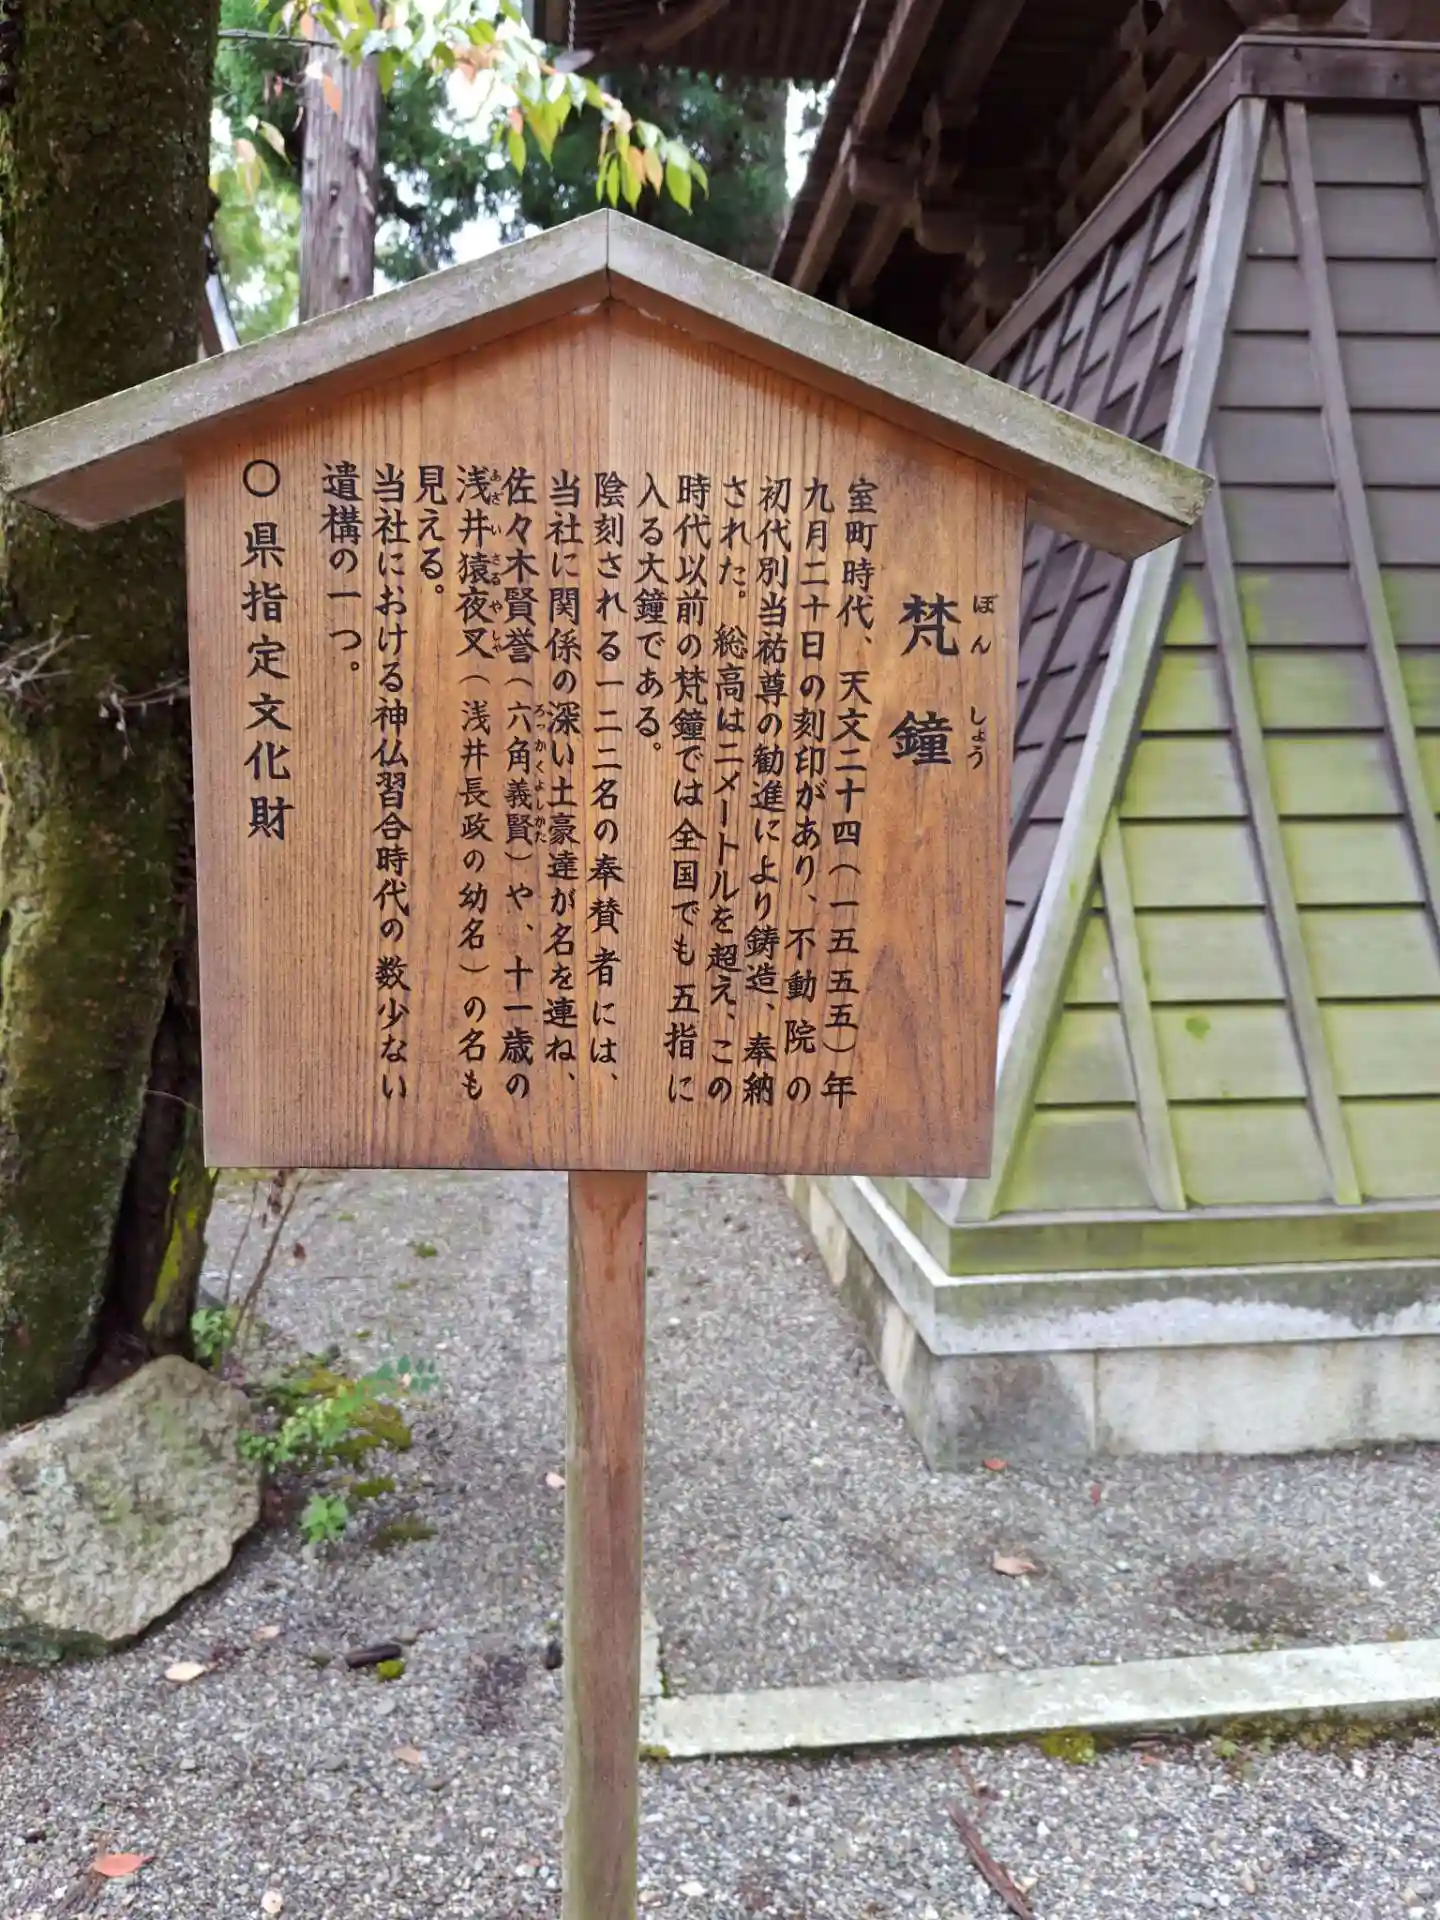 梵鐘
ぼんしょう
室町時代、天文二十四（一五五五）年
九月二十日の刻印があり、不動院の
初代別当祐尊の勧進により鋳造、奉納
された。総高は二メートルを超え、この
時代以前の梵鐘では全国でも五指に
入る大鐘である。
陰刻される一二二名の奉賛者には、
当社に関係の深い土豪達が名を連ね、
佐々木賢誉（六角義賢）や、十一歳の
ろっかくよしかた
浅井猿夜叉（浅井長政の幼名）の名も
あざいさるやしゃ
見える。
当社における神仏習合時代の数少ない
遺構の一つ。
〇県指定文化財